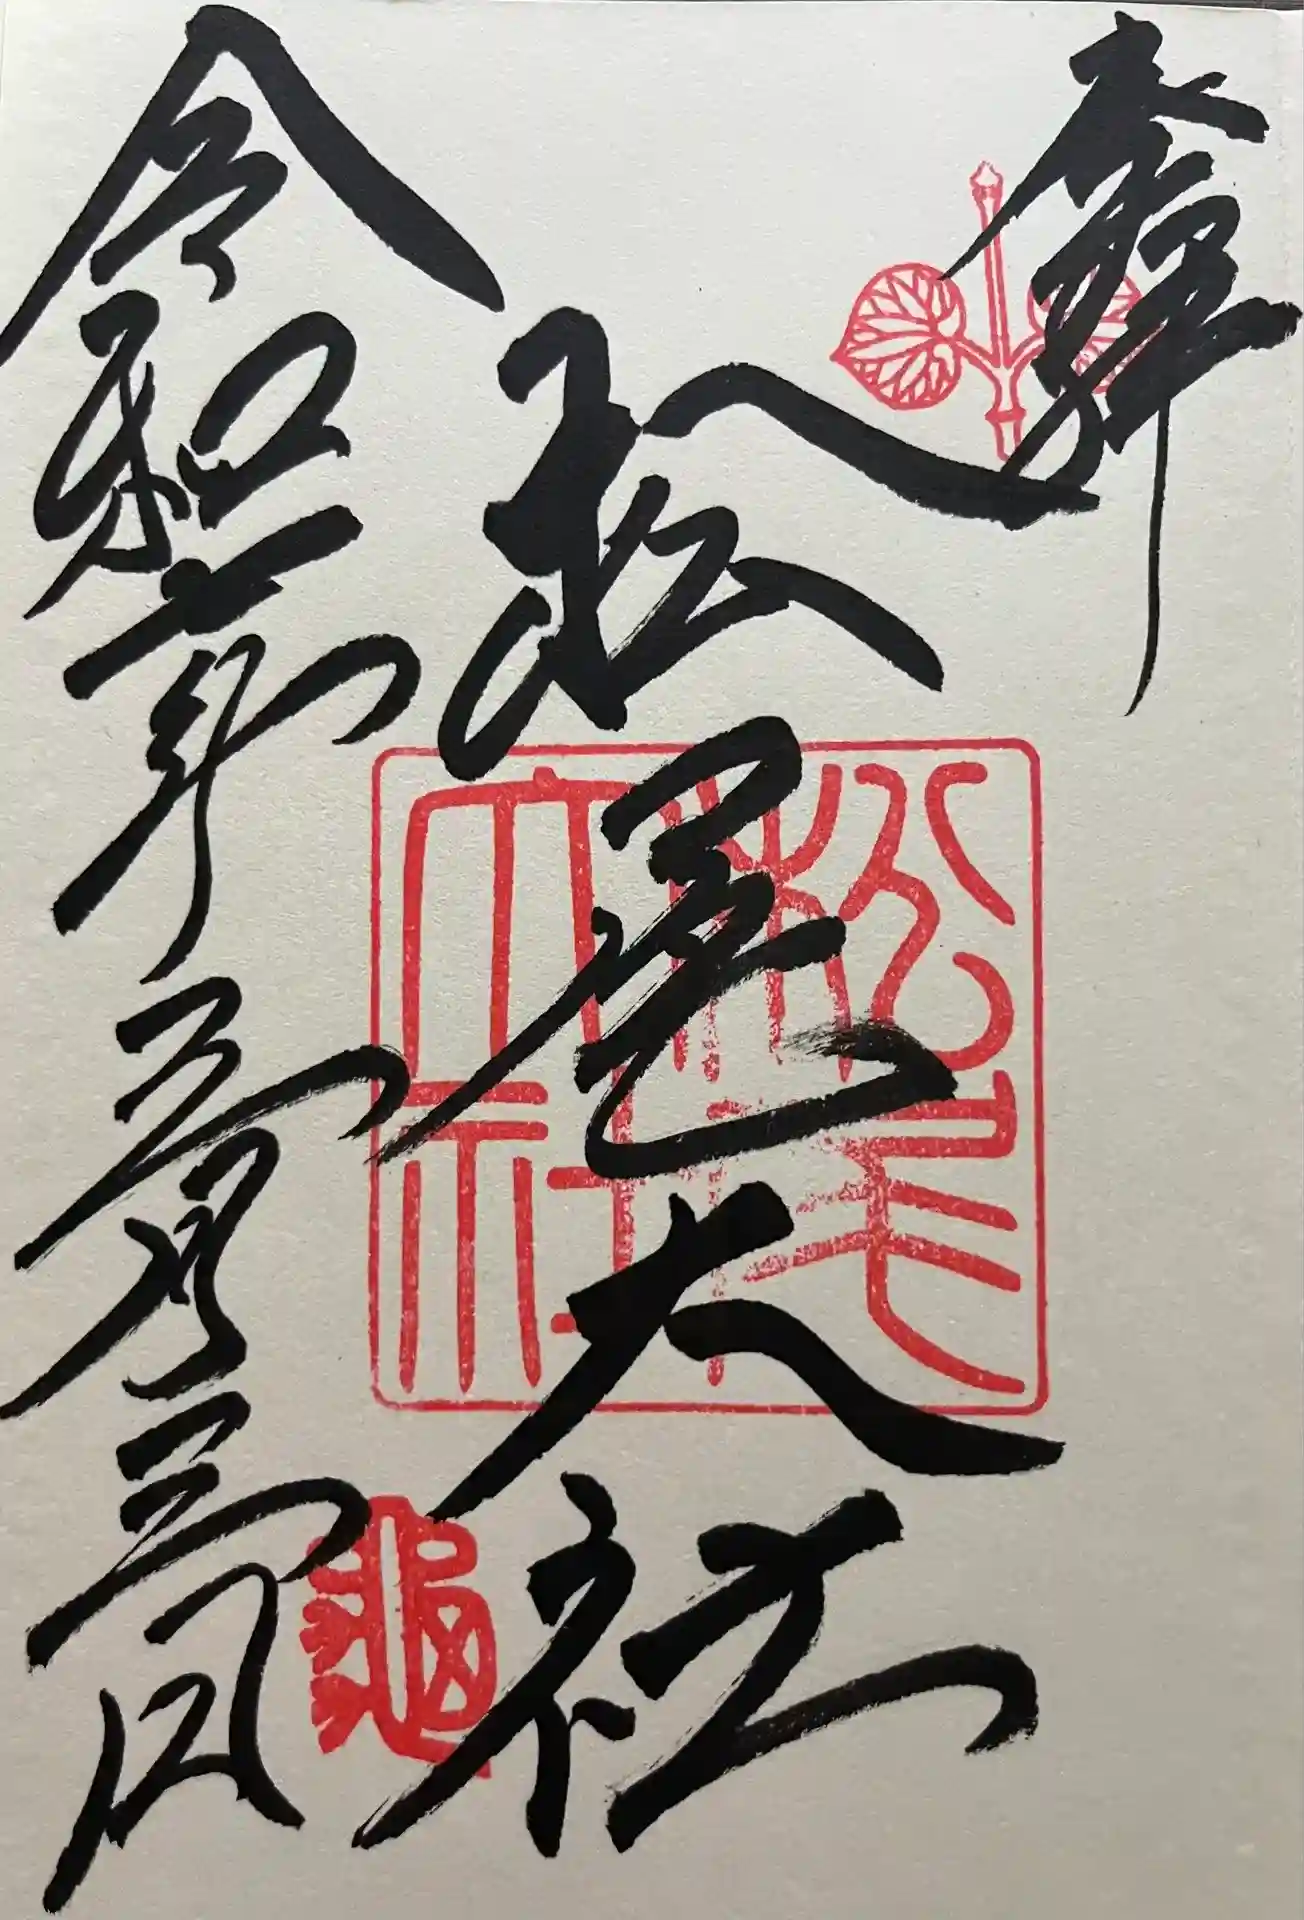 奉拝
松尾大社
令和六年三月三日
松尾大社
龜